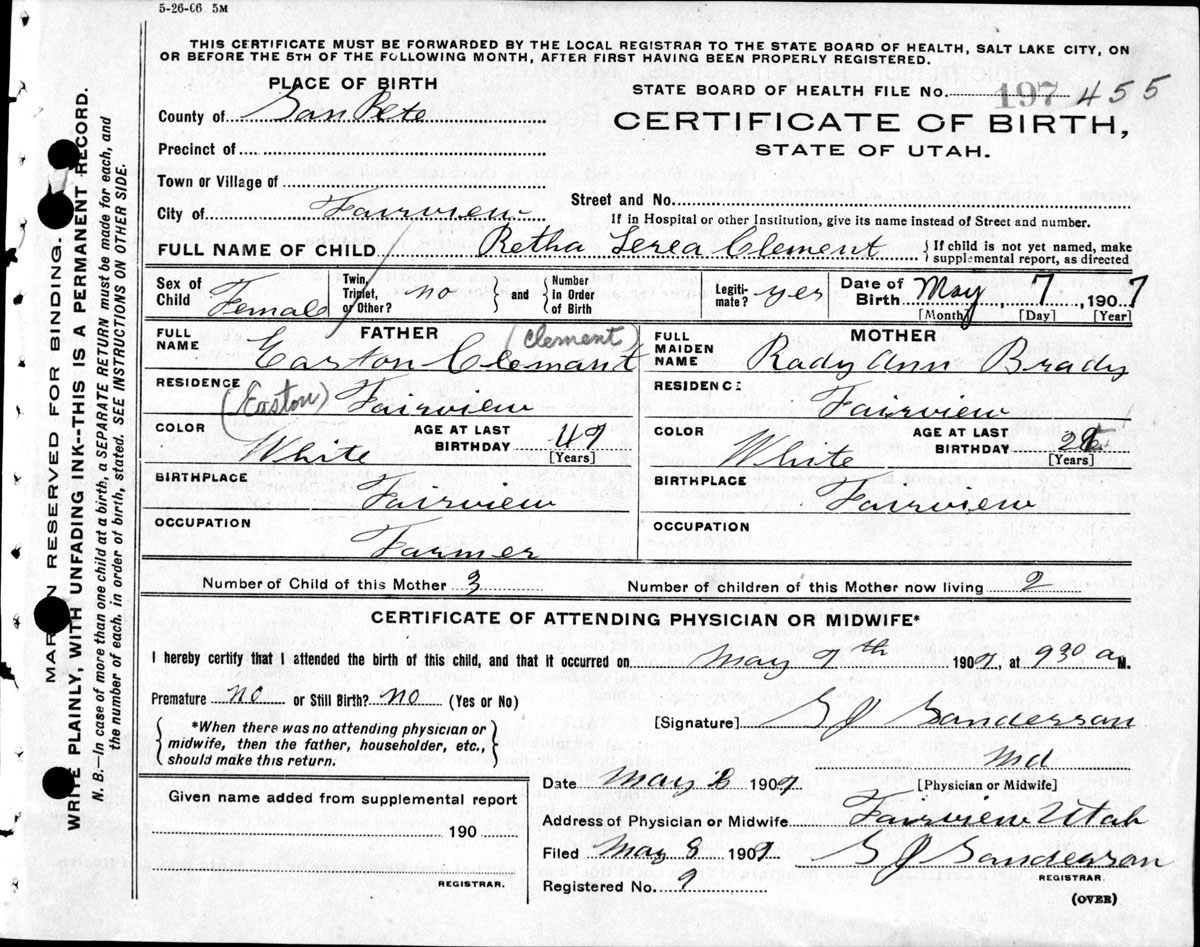 5-26-06 5M
THIS CERTIFICATE MUST BE FORWARDED BY THE LOCAL REGISTRAR TO THE STATE BOARD OF HEALTH, SALT LAKE CITY, ON
OR BEFORE THE 5TH OF THE FOLLOWING MONTH, AFTER FIRST HAVING BEEN PROPERLY REGISTERED.
PLACE OF BIRTH
County of San Pete
Precinct of
Town or Village of
City of Fairview
STATE BOARD OF HEALTH FILE No. 197 455
CERTIFICATE OF BIRTH,
STATE OF UTAH.
Street and No.
If in Hospital or other Institution, give its name instead of Street and number.
FULL NAME OF CHILD Retha Clement
{If child is not yet named, make
supplemental report, as directed
Sex of Child Female
Twin, Triplet, or Other? no } and { Number in Order of Birth
Legiti-mate? yes
Date of Birth May 7, 1907
[Month] [Day] [Year]
FATHER
FULL NAME Easton Clemant (Clement)
RESIDENCE (Easton) Fairview
COLOR White AGE AT LAST BIRTHDAY 47 [Years]
BIRTHPLACE Fairview
OCCUPATION Farmer
MOTHER
FULL MAIDEN NAME Rady Ann Brady
RESIDENCE Fairview
COLOR White AGE AT LAST BIRTHDAY [Years]
BIRTHPLACE Fairview
OCCUPATION
Number of Child of this Mother 3 Number of children of this Mother now living 2
CERTIFICATE OF ATTENDING PHYSICIAN OR MIDWIFE*
I hereby certify that I attended the birth of this child, and that it occurred on May 7th 1907, at 9 30 a M.
Premature no or Still Birth? no (Yes or No)
{*When there was no attending physician or
midwife, then the father, householder, etc.,
should make this return.}
[Signature] S J Sanderson
Md
[Physician or Midwife]
Date May 8 1907
Address of Physician or Midwife Fairview Utah
Filed May 8 1907 S J Sanderson
REGISTRAR.
Registered No. 9
(OVER)
Given name added from supplemental report
190
REGISTRAR.
MARGIN RESERVED FOR BINDING.
WRITE PLAINLY, WITH UNFADING INK--THIS IS A PERMANENT RECORD.
N. B.—In case of more than one child at a birth, a SEPARATE RETURN must be made for each, and
the number of each, in order of birth, stated. SEE INSTRUCTIONS ON OTHER SIDE.